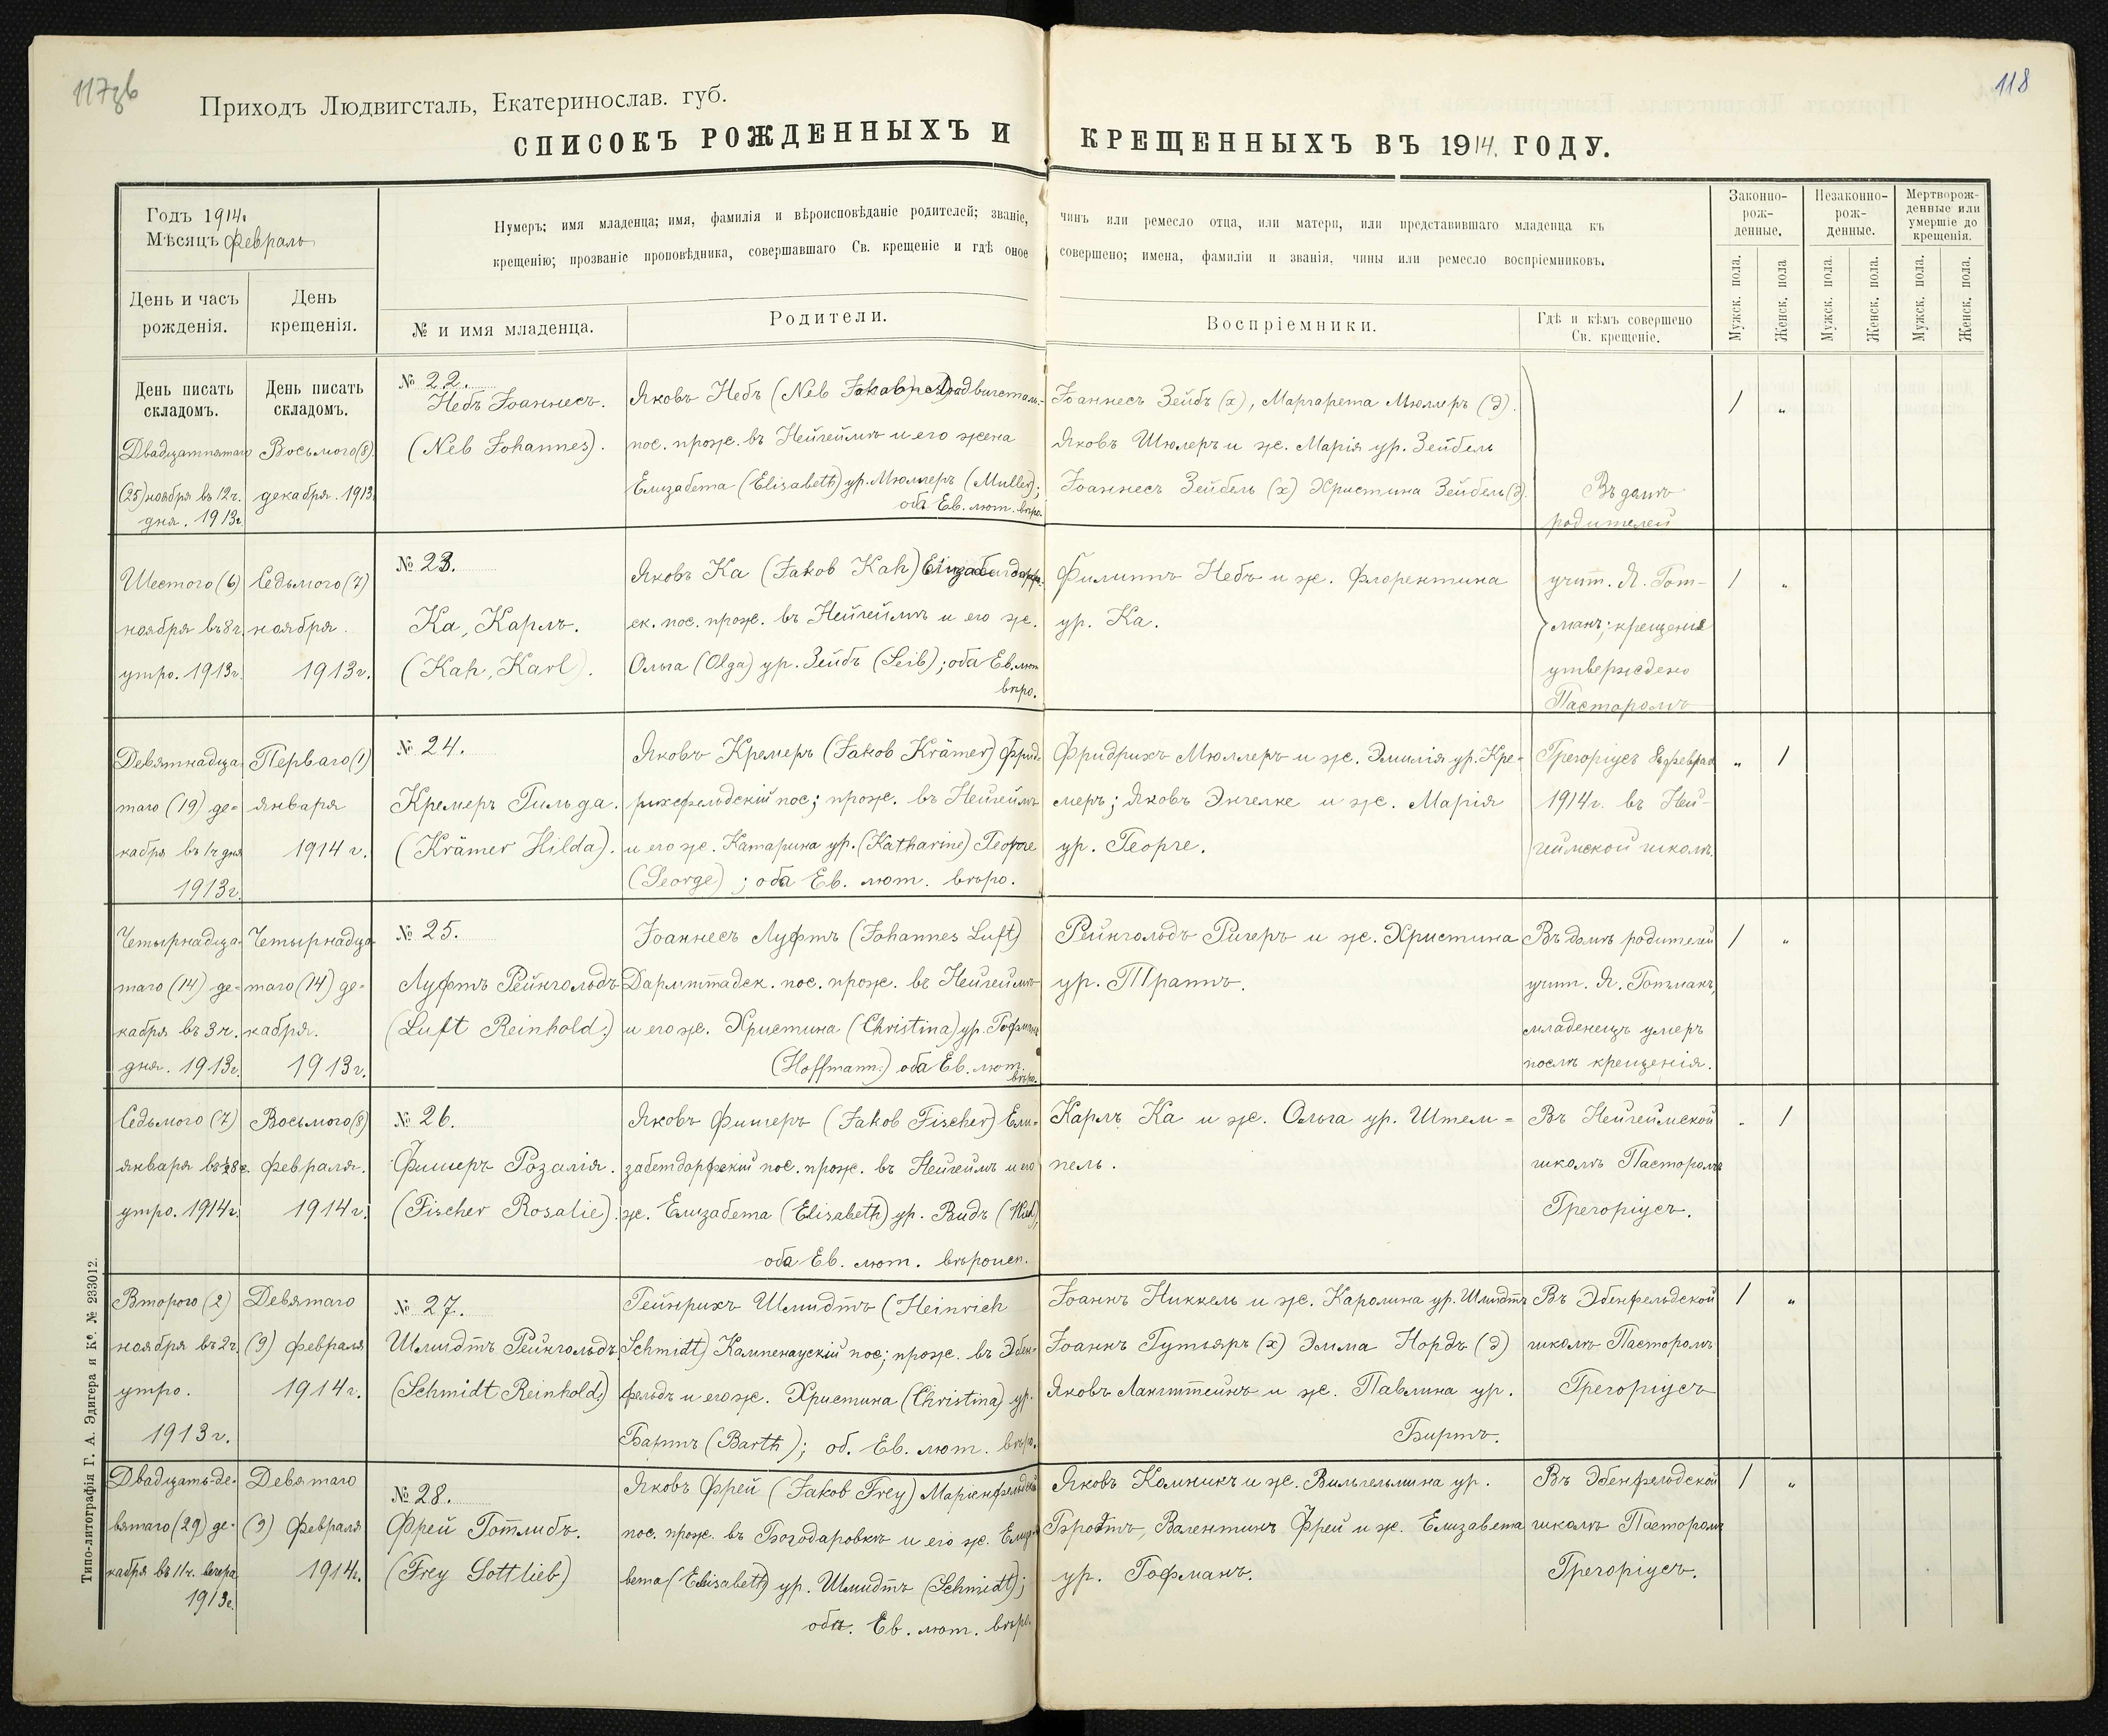 117об
118
Приходъ Людвигсталь, Екатеринослав. губ.
СПИСОКЪ РОЖДЕННЫХЪ И КРЕЩЕННЫХЪ ВЪ 1914. ГОДУ.
Годъ 1914.
Мѣсяцъ Февраль
День и часъ рожденія.
День крещенія.
Нумеръ; имя младенца; имя, фамилія и вѣроисповѣданіе родителей; званіе, чинъ или ремесло отца, или матери, или представившаго младенца къ
крещенію; прозваніе проповѣдника, совершавшаго Св. крещеніе и гдѣ оное совершено; имена, фамиліи и званія, чины или ремесло воспріемниковъ.
№ и имя младенца.
Родители.
Воспріемники.
Гдѣ и кѣмъ совершено
Св. крещеніе.
Законно-
рож-
денные.
Незаконно-
рож-
денные.
Мертворож-
денные или
умершіе до
крещенія.
Мужск. пола.
Женск. пола
Мужск. пола.
Женск. пола.
Мужск. пола.
Женск. пола.
День писать
складомъ.
День писать
складомъ.
Двадцатпятаго
(25) ноября въ 12 ч.
дня. 1913г
Восьмого (8)
декабря. 1913
№ 22.
Небъ Іоаннесъ.
(Neb Johannes).
Яковъ Небъ (Neb Jakob) Людвигсталь-
пос. прож. въ Нейгеймѣ и его жена
Елизабета (Elisabeth) ур. Мюллеръ (Muller);
оба Ев. лют. вѣро.
Іоаннесъ Зейбъ (х), Маргарета Мюллеръ (д).
Яковъ Шюлеръ и ж. Марія ур. Зейбель
Іоаннесъ Зейбель (х) Христина Зейбель (д).
Въ домѣ
родителей
1 "
Шестого (6)
ноября въ 8 ч.
утро. 1913г.
Седьмого (7)
ноября.
1913г.
№ 23.
Ка, Карлъ.
(Kah, Karl).
Яковъ Ка (Jakob Kah)
ск. пос. прож. въ Нейгеймѣ и его ж.
Ольга (Olga) ур. Зейбъ (Seib); оба Ев. лют
вѣро.
Филиппъ Небъ и ж. Флорентина
ур. Ка.
учит. Я. Гот-
манъ; крещеніе
утверждено
Пасторомъ
1 "
Девятнадца-
таго (19) де-
кабря въ 1 ч дня
1913г.
Перваго (1)
января
1914 г.
№ 24.
Кремеръ Гильда.
(Krämer Hilda).
Яковъ Кремеръ (Jakob Krämer) Фрид-
рихсфельдскій пос; прож. въ Нейгеймѣ
и его ж. Катарина ур. (Katharine) Георге
(George); оба Ев. лют. вѣро.
Фридрихъ Мюллеръ и ж. Эмилія ур. Кре-
меръ; Яковъ Энгелке и ж. Марія
ур. Георге.
Грегоріусъ 8 февраля
1914г. въ Ней-
геймской школѣ.
" 1
Четырнадца-
таго (14) де-
кабря въ 3 ч.
дня. 1913г.
Четырнадца-
таго (14) де-
кабря.
1913г.
№ 25.
Луфтъ Рейнгольдъ
(Luft Reinhold.)
Іоаннесъ Луфтъ (Johannes Luft)
Дармштадск. пос. прож. въ Нейгеймѣ
и его ж. Христина (Christina) ур. Гофманъ
(Hoffmann.) оба Ев. лют.
вѣро.
Рейнгольдъ Ригеръ и ж. Христина
ур. Траппъ.
Въ домѣ родителей
учит. Я. Готманъ,
младенецъ умеръ
послѣ крещенія.
1 "
Седьмого (7)
января въ ½ 8 ч.
утро. 1914г.
Восьмого (8)
февраля.
1914 г.
№ 26.
Фишеръ Розалія.
(Fischer Rosalie).
Яковъ Фишеръ (Jakob Fischer) Ели-
забетдорфскій пос. прож. въ Нейгеймѣ и его
ж. Елизабета (Elisabeth) ур. Видъ
оба Ев. лют. вѣроисп.
Карлъ Ка и ж. Ольга ур. Штем-
пель.
Въ Нейгеймской
школѣ Пасторомъ
Грегоріусъ.
" 1
Второго (2)
ноября въ 2 ч.
утро.
1913 г.
Девятаго
(9) февраля
1914 г.
№ 27.
Шмидтъ Рейнгольдъ.
(Schmidt Reinhold.)
Гейнрихъ Шмидтъ (Heinrich
Schmidt) Кампенаускій пос; прож. въ Эбен-
фельдъ и его ж. Христина (Christina) ур.
Бартъ (Barth); об. Ев. лют. вѣро.
Іоаннъ Никкель и ж. Каролина ур. Шмидтъ
Іоаннъ Гутьяръ (х) Эмма Нордъ (д)
Яковъ Лангштейнъ и ж. Павлина ур.
Биртъ.
Въ Эбенфельдской
школѣ Пасторомъ
Грегоріусъ
1 "
Двадцать-де-
вятаго (29) де-
кабря въ 11 ч. вечера
1913г.
Девятаго
(9) Февраля
1914г.
№ 28.
Фрей Готлибъ.
(Frey Gottlieb)
Яковъ Фрей (Jakob Frey) Маріенфельдскій
пос. прож. въ Богодаровкѣ и его ж. Елиза-
вета (Elisabeth) ур. Шмидтъ (Schmidt);
оба. Ев. лют. вѣро.
Яковъ Комникъ и ж. Вильгельмина ур.
Бростъ, Валентинъ Фрей и ж. Елизавета
ур. Гофманъ.
Въ Эбенфельдской
школѣ Пасторомъ
Грегоріусъ.
1 "
Типо-литографія Г. А. Эдигера и Ко. № 233012.